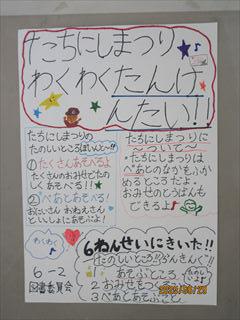 たちにしまつり
わくわくたんけ
んたい!!
たちにしまつりの
たのしいところはいんと〜!!
①たくさんあそべるよ
たくさんのおみせでたの
しくあそべる!!
②ぺあとあそべる!
おにいさん おねえさんと
いっしょにあそぶよ!
たちにしまつりに
〜ついて〜
・たちにしまつりは
ぺあとのなかをふか
めるところだよ。
おみせのとうばんも
できるよ
わくわく
6ねんせいにきいた!!
たのしいところ!!
1 あそぶところ
2 おみせをつくる
3 ぺあとあそぶこと
たのしいよ!
6-2
図書委員会